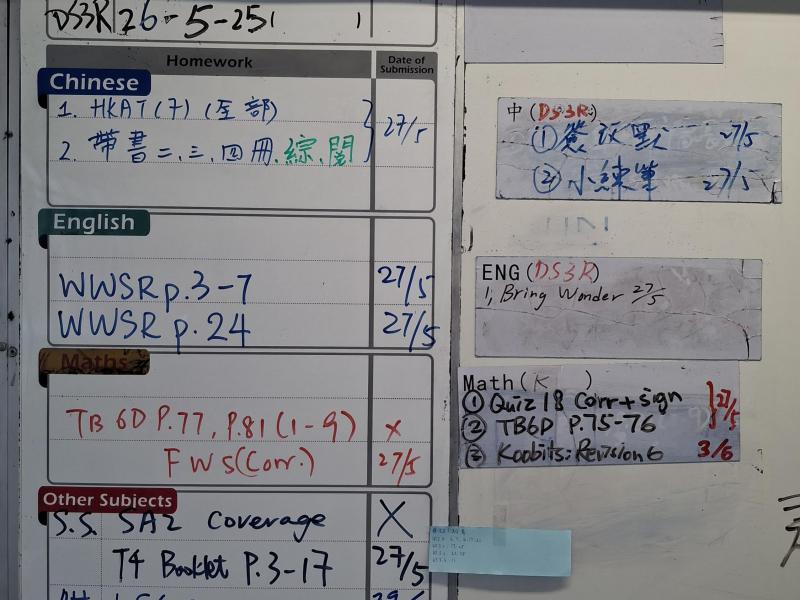 DS3R 26-5-25
Homework
Date of Submission
Chinese
1. HKAT(7) (全部)
2. 帶書二、三、四冊、綜、閱
27/5
English
WWSR p.3-7 27/5
WWSR p.24 27/5
Maths
TB 6D P.77, P.81(1-9) X
FWS(Corr.) 27/5
Other Subjects
S.S. SA2 Coverage X
T4 Booklet P.3-17 27/5
中(DS3R)
① 簽改默 27/5
② 小練筆 27/5
ENG(DS3R)
1, Bring Wonder 27/5
Math(K )
① Quiz 18 Corr+sign
② TB6D P.75-76
27/5
③ Koobits: Revision 6 3/6